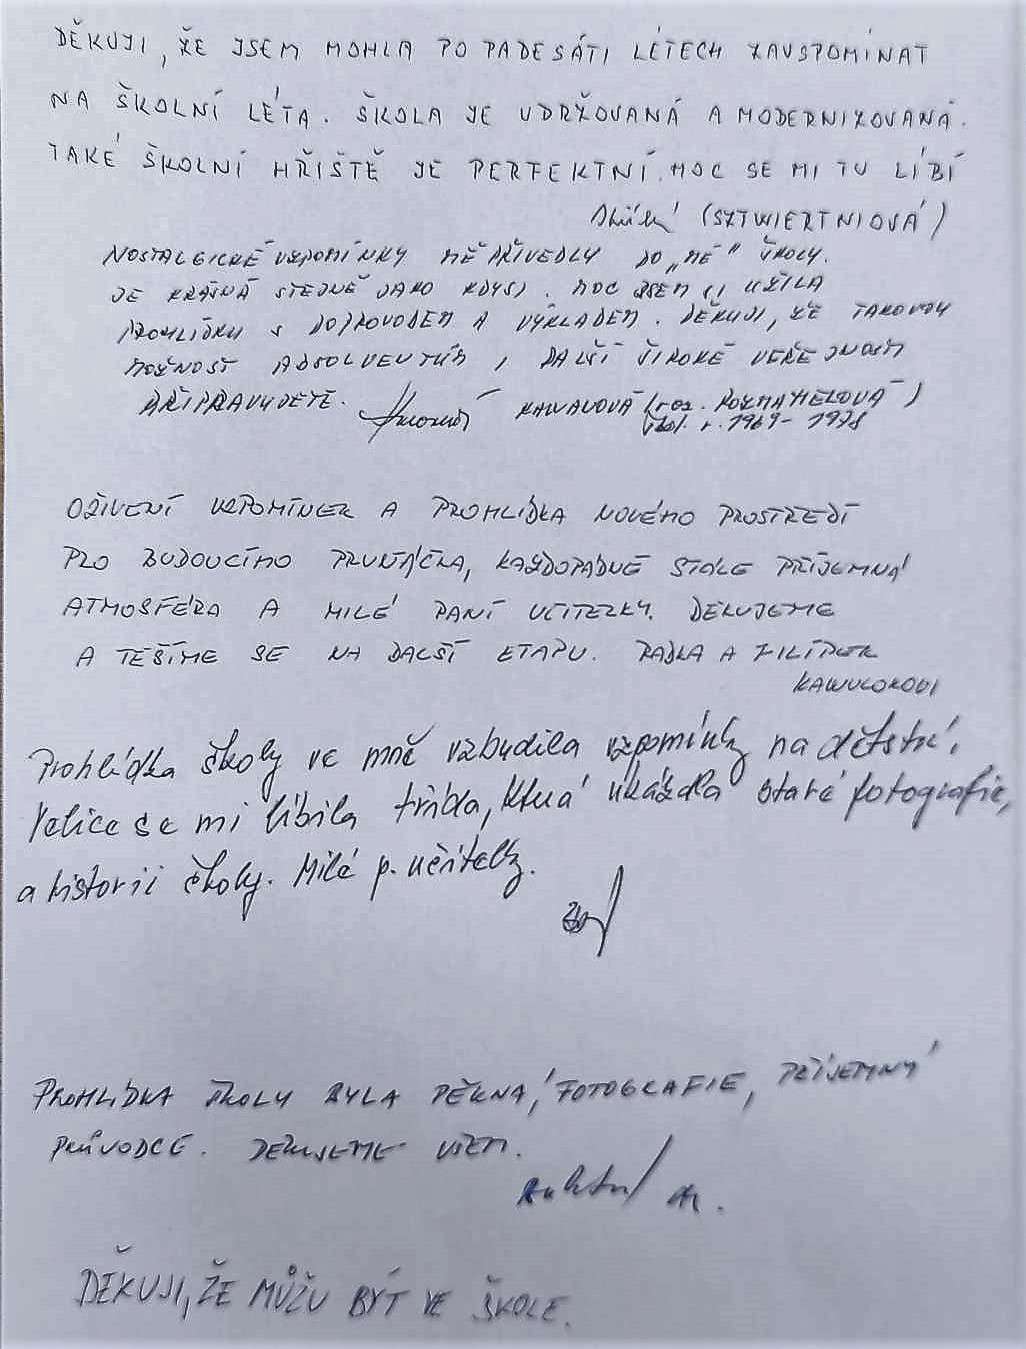 DĚKUJI, ŽE JSEM MOHLA PO PADESÁTI LÉTECH ZAVSPOMÍNAT
NA ŠKOLNÍ LÉTA. ŠKOLA JE UDRŽOVANÁ A MODERNIZOVANÁ.
TAKÉ ŠKOLNÍ HŘIŠTĚ JE PERFEKTNÍ. MOC SE MI TU LÍBÍ
(SZTWIERTNIOVÁ)
NOSTALGICKÉ VZPOMÍNKY MĚ PŘIVEDLY DO „MÉ" ŠKOLY.
JE KRÁSNÁ STEJNĚ JAKO KDYSI. MOC JSEM SI UŽILA
PROHLÍDKU S DOPROVODEM A VÝKLADEM. DĚKUJI, ŽE TAKOVOU
MOŽNOST ABSOLVENTŮM, DALŠÍ ŠIROKÉ VEŘEJNOSTI
PŘIPRAVUJETE. KAWALOVÁ (roz. POZMAHELOVÁ)
šk. r. 1969 - 1978
OŽIVENÍ VZPOMÍNEK A PROHLÍDKA NOVÉHO PROSTŘEDÍ
PRO BUDOUCÍHO PRVŇÁČKA, KAŽDOPÁDNĚ STÁLE PŘÍJEMNÁ
ATMOSFÉRA A MILÉ PANÍ UČITELKY. DĚKUJEME
A TĚŠÍME SE NA DALŠÍ ETAPU. RADKA A FILÍPEK
KAWULOKOVI
Prohlídka školy ve mně vzbudila vzpomínky na dětství.
Velice se mi líbila třída, která ukázala staré fotografie,
a historii školy. Milé p. učitelky.
PROHLÍDKA ŠKOLY BYLA PĚKNÁ, FOTOGRAFIE, PŘÍJEMNÝ
PRŮVODCE. DĚKUJEME VŠEM.
DĚKUJI, ŽE MŮŽU BÝT VE ŠKOLE.